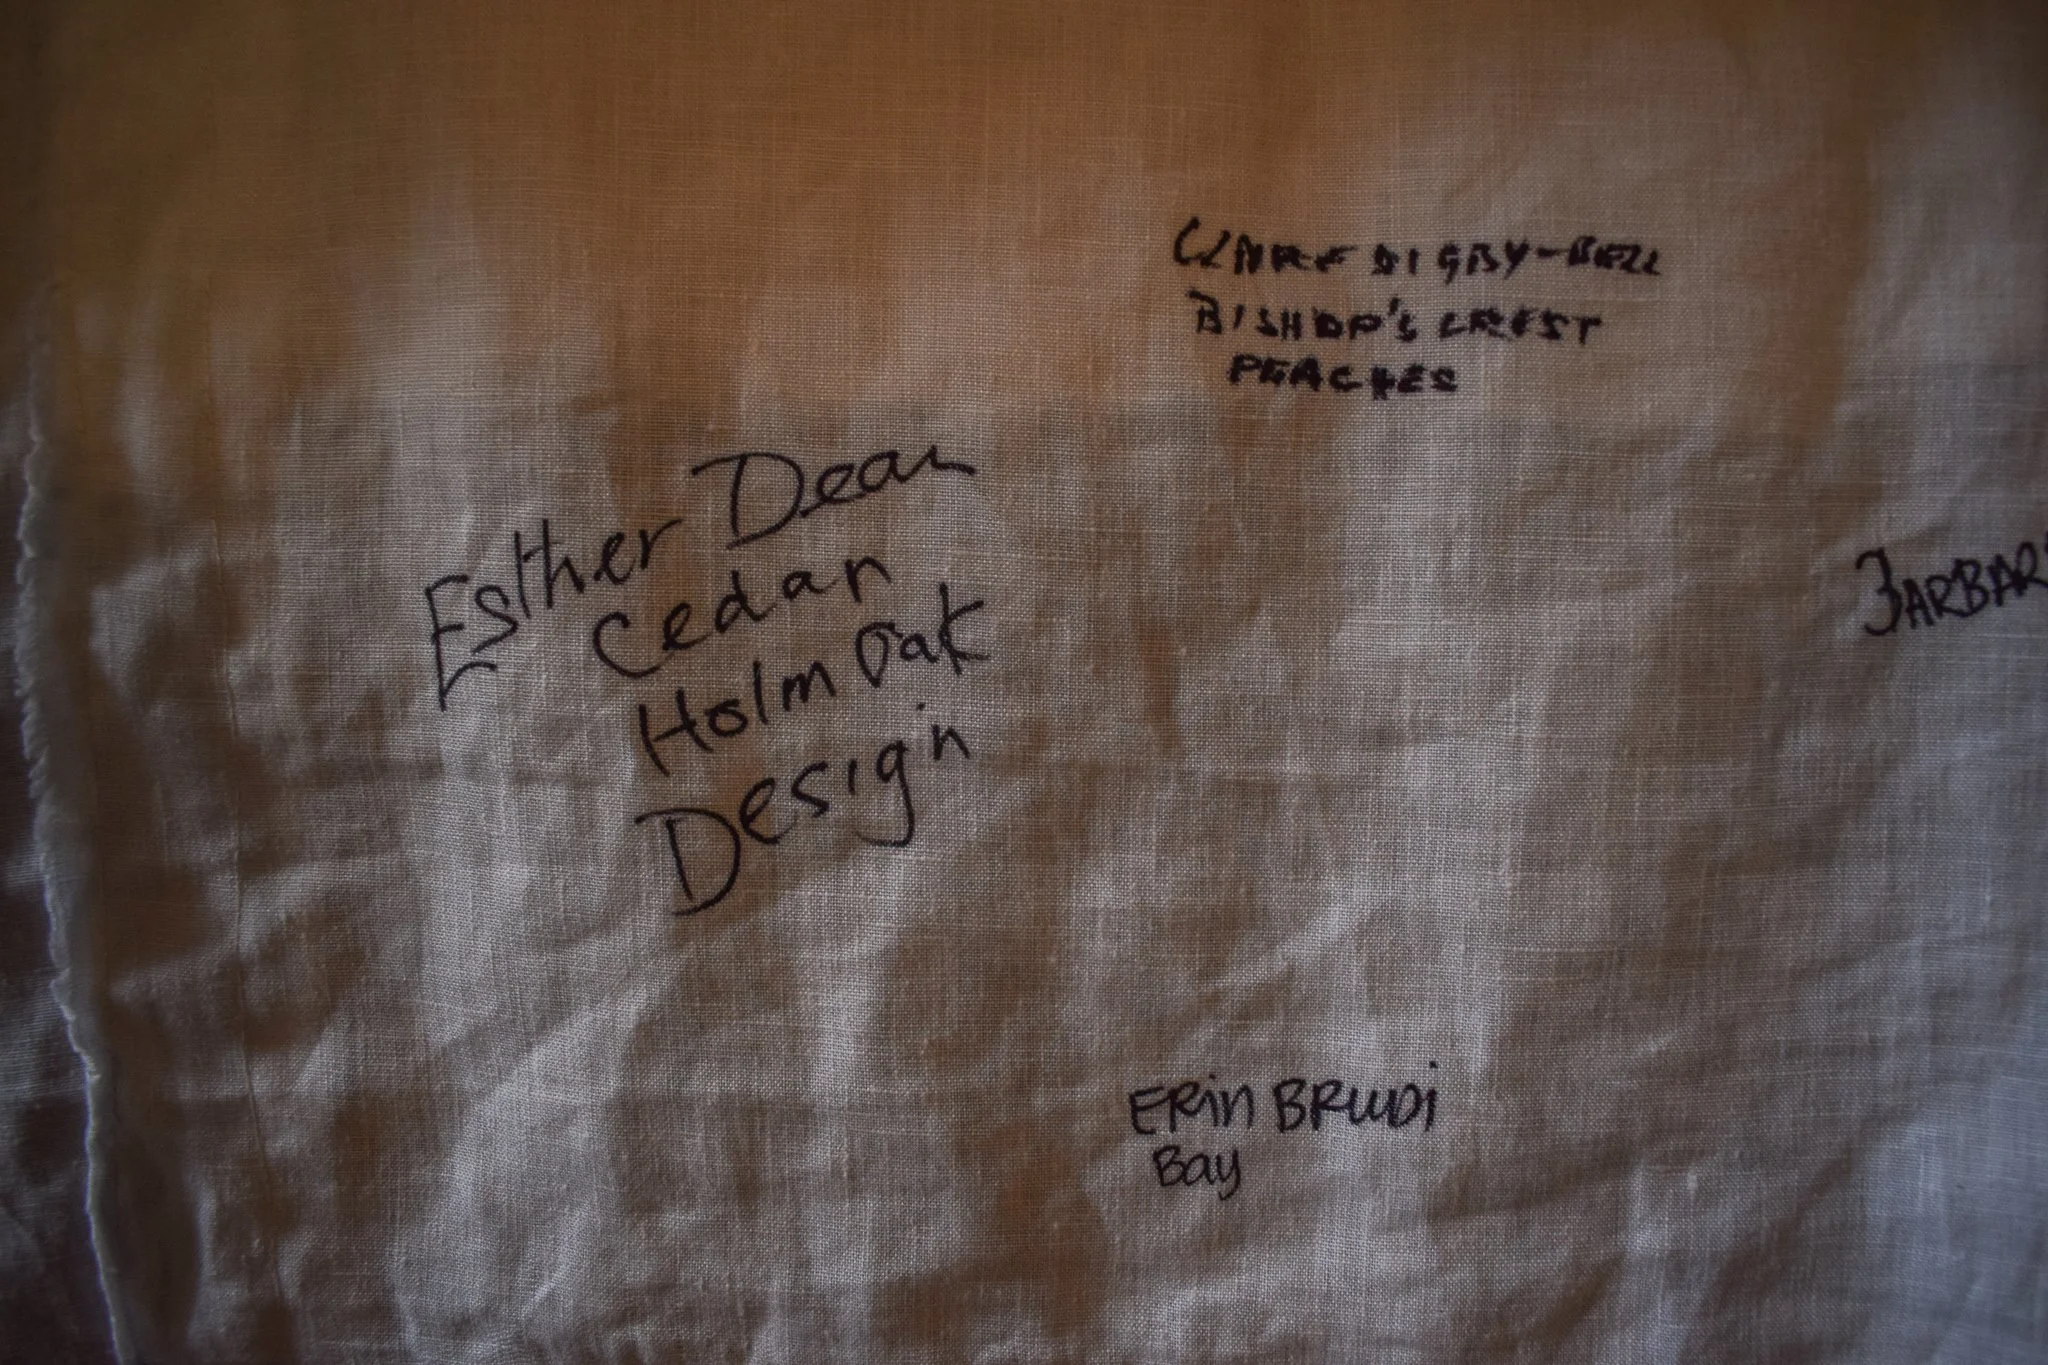 CLARE DIGBY-BELL
BISHOP'S CREST
PEACHES
Esther Dean
Cedar
Holm Oak
Design
BARBAR
ERin BRUDi
Bay